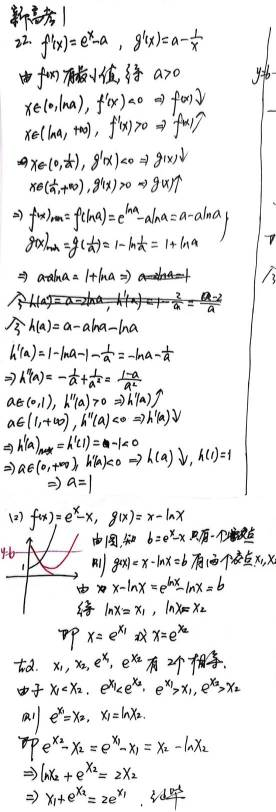 新高考1
22. f'(x)=e^x-a , g'(x)=a-1/x
由f(x)有最小值,得 a>0
x∈(0,lna), f'(x)<0 ⇒ f(x)↓
x∈(lna,+∞), f'(x)>0 ⇒ f(x)↑
x∈(0,1/a), g'(x)<0 ⇒ g(x)↓
x∈(1/a,+∞), g'(x)>0 ⇒ g(x)↑
⇒ f(x)min=f(lna)=e^lna-alna=a-alna
g(x)min=g(1/a)=1-ln1/a=1+lna
⇒ a-alna=1+lna ⇒
令 h(a)=a-alna-lna
h'(a)=1-lna-1-1/a=-lna-1/a
⇒h''(a)=-1/a+1/a²=(1-a)/a²
a∈(0,1), h''(a)>0 ⇒h'(a)↑
a∈(1,+∞), h''(a)<0 ⇒h'(a)↓
⇒h'(a)max=h'(1)=-1<0
⇒a∈(0,+∞), h'(a)<0 ⇒ h(a)↓, h(1)=1
⇒ a=1
(2) f(x)=e^x-x, g(x)=x-lnx
y=b
1
由图知 b=e^x-x 只有一个
则 g(x)=x-lnx=b 有两个交点 x₁,x₂
由 x-lnx=e^lnx-lnx=b
得 lnx=x₁, lnx=x₂
即 x=e^x₁ 或 x=e^x₂
x₁, x₂, e^x₁, e^x₂ 有2个相等.
由于 x₁<x₂. e^x₁<e^x₂, e^x₁>x₁, e^x₂>x₂
则 e^x₁=x₂, x₁=lnx₂.
即 e^x₂-x₂=e^x₁-x₁=x₂-lnx₂
⇒lnx₂+e^x₂=2x₂
⇒x₁+e^x₂=2e^x₁ , 证毕